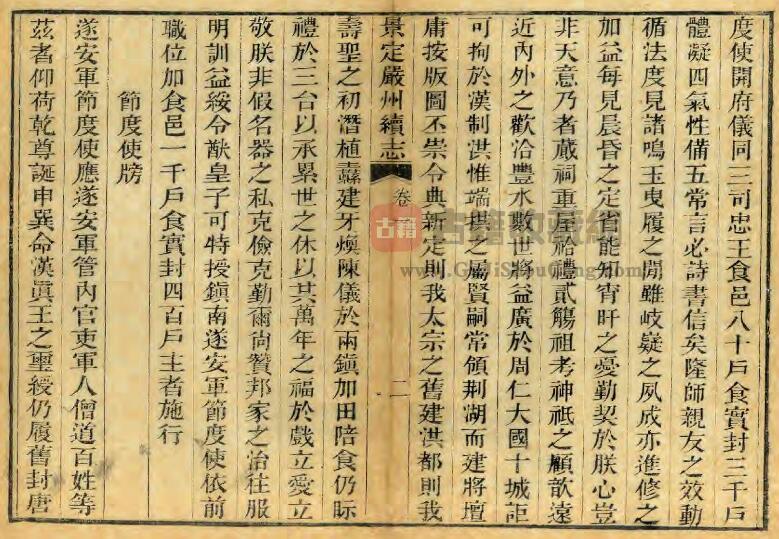 度使開府儀同三司忠王食邑八千戶食實封三千戶
體凝四氣性備五常言必詩書信矣隆師親友之效動
循法度見諸鳴玉曳履之閒雖岐嶷之夙成亦進修之
加益每見晨昏之定省能知宵旰之憂勤契於朕心豈
非天意乃者蕆祠重屋祫禮貳觴祖考神祇之顧歆遠
近內外之歡洽豐水數世將益廣於周仁大國十城詎
可拘於漢制洪惟端揆之屬賢嗣常領荆湖而建將壇
庸按版圖丕崇令典新定則我太宗之舊建洪都則我
景定嚴州續志 卷 二
壽聖之初潛植纛建牙煥陳儀於兩鎭加田陪食仍眎
禮於三台以承累世之休以其萬年之福於戲立愛立
敬朕非假名器之私克儉克勤爾尙贊邦家之治往服
明訓益綏令猷皇子可特授鎭南遂安軍節度使依前
職位加食邑一千戶食實封四百戶主者施行
節度使牓
遂安軍節度使應遂安軍管內官吏軍人僧道百姓等
茲者仰荷乾尊誕申巽命漢眞王之璽綬仍履舊封唐
古籍收藏網
www.GuJiShouCang.com